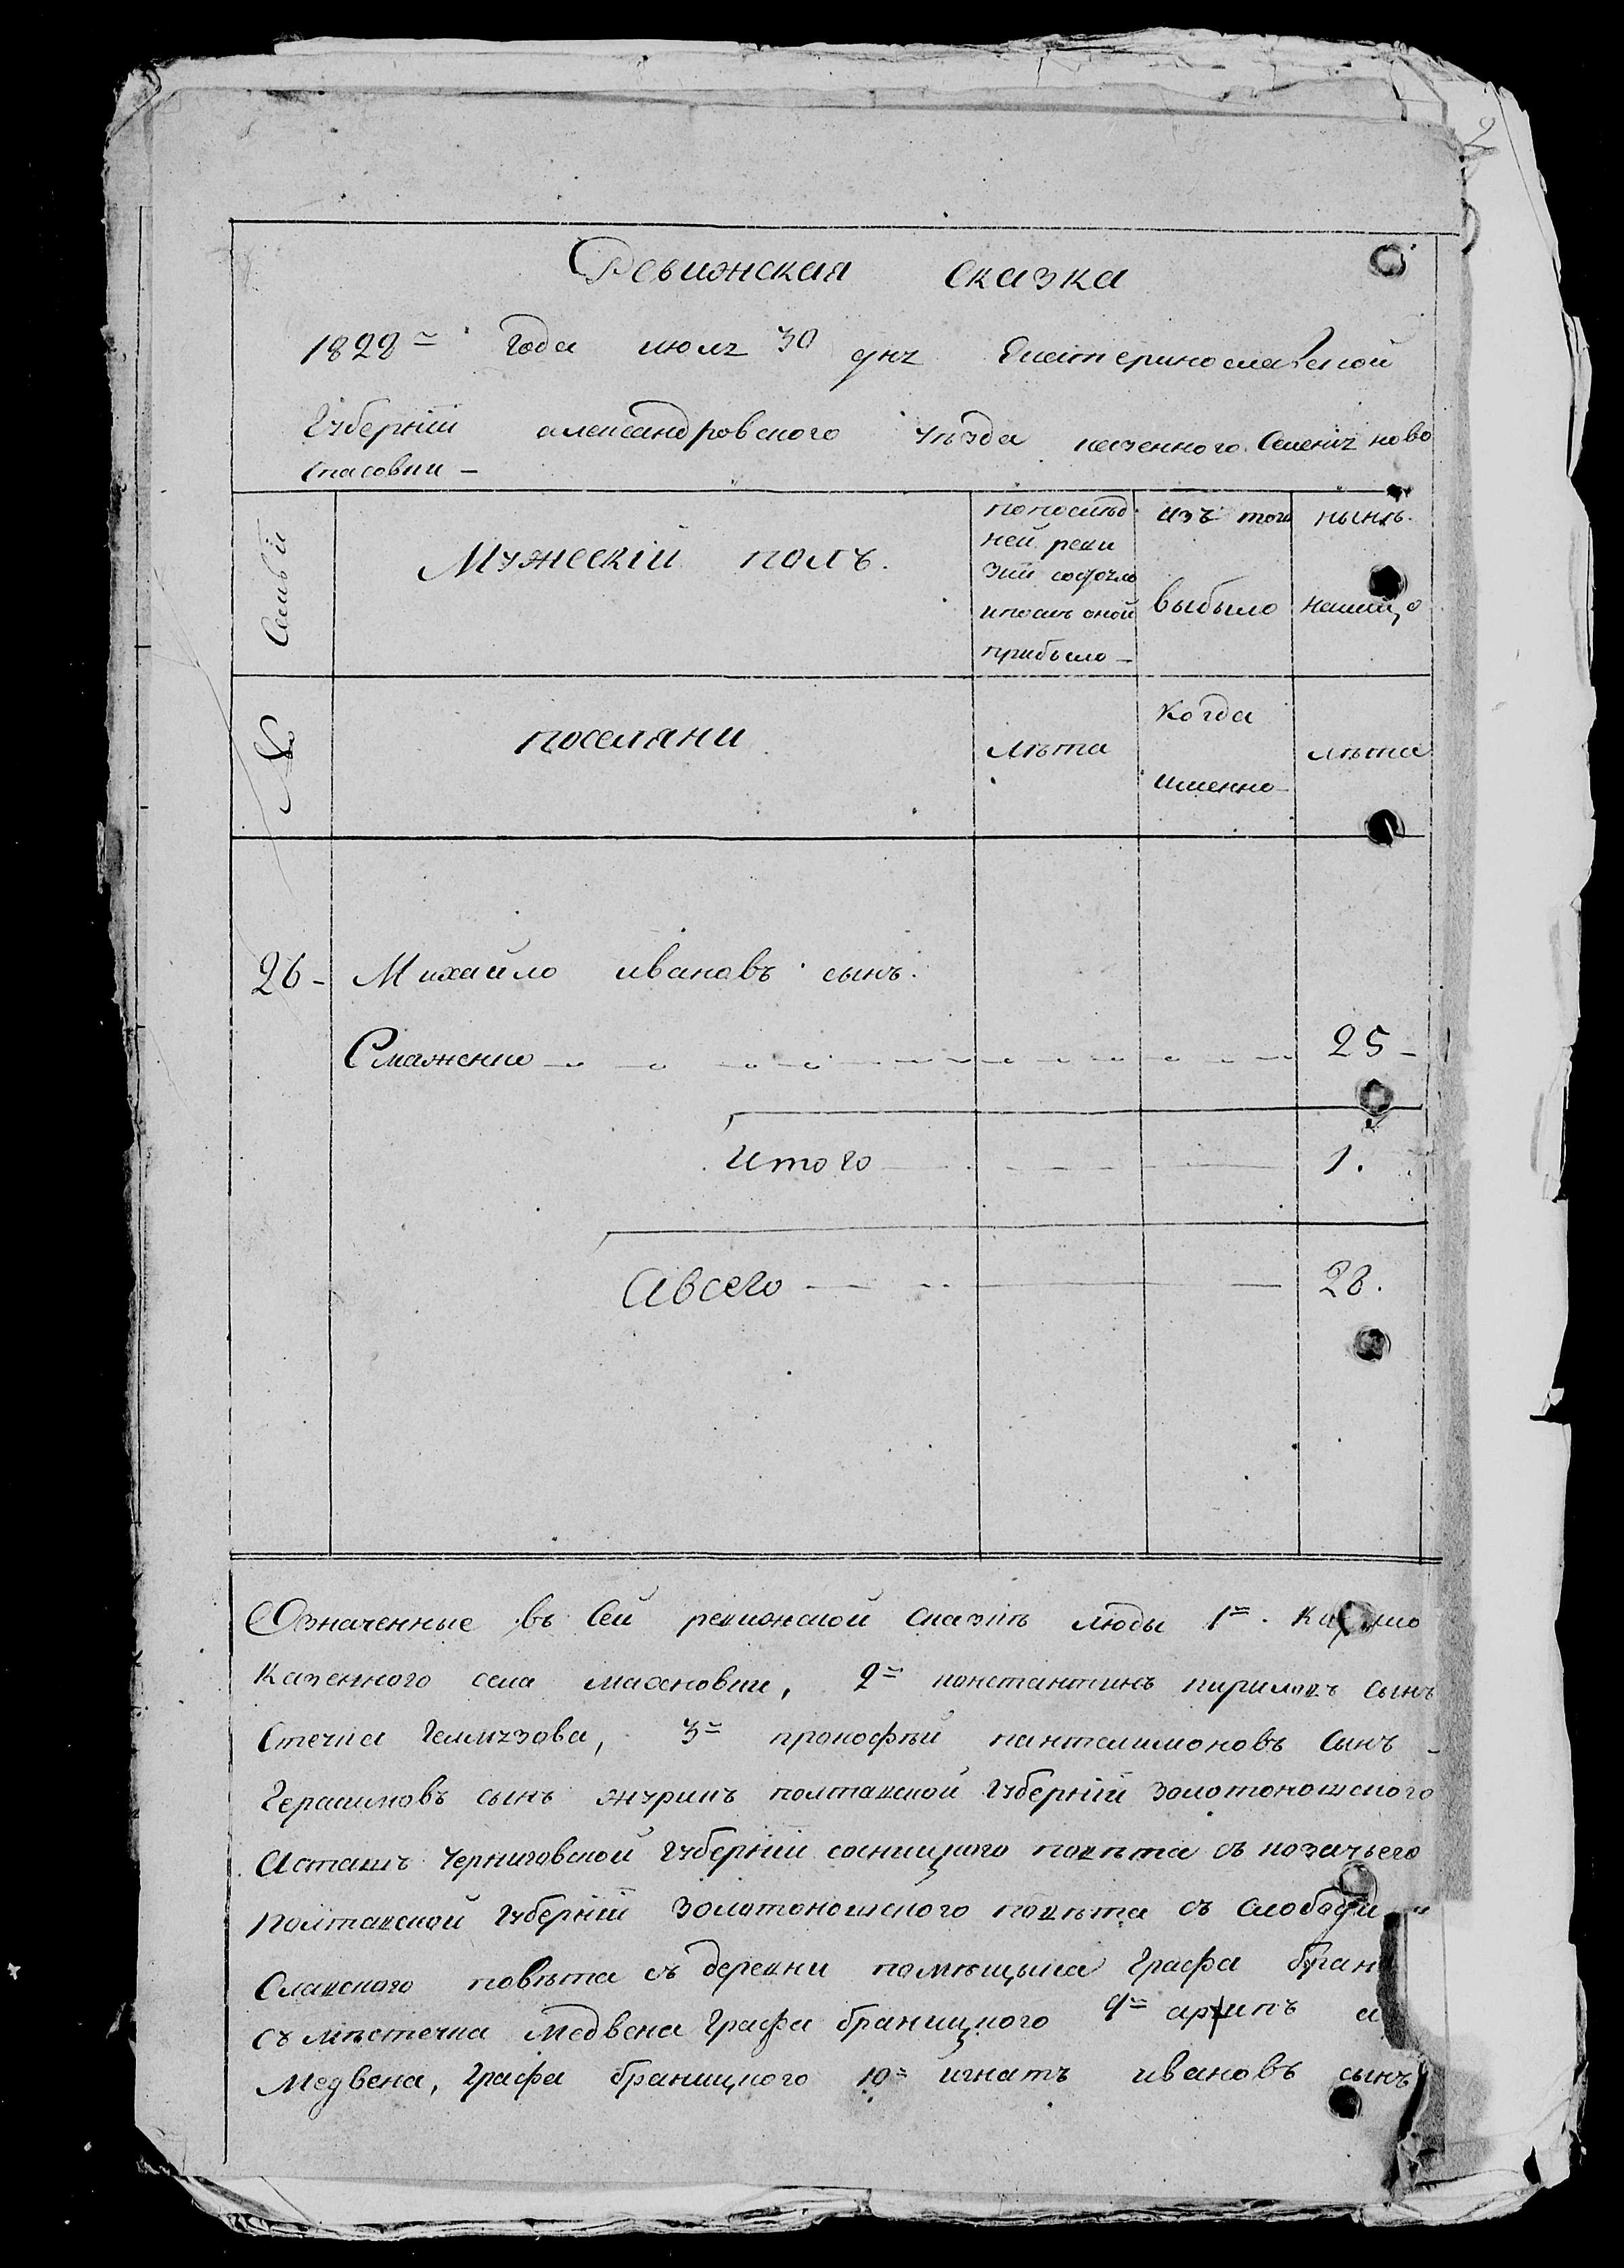 2
Ревижская сказка
1828го года июля 30 дня Екатеринославской
Губерніи александровского уѣзда казенного Селенія ново
спасовки –
Семьи
Мужескій полъ.
попослѣд
ней реви
зіи состояло
ипослѣ оной
прибыло –
изъ того
выбыло
нынѣ.
налицо
№
поселяни
лѣта
когда
именно
лѣта
26 – Михайло ивановъ сынъ.
Смаженко 25 –
Итого 1.
Авсего 28.
Означенные въ Сей ревижской Сказкѣ люды 1й.
Казенного села махновки, 2й константинъ кириловъ сынъ
Стечка 3й прокофѣй пантелимоновъ Сынъ –
Герасимовъ сынъ журикъ полтавской Губерніи Золотоношского
Асташъ Черниговской Губерніи сосницкого повѣта съ козачьего
Полтавской Губерніи Золотоношского повѣта съ слободи
Славского повѣта съ деревни помѣщика Графа бран
съ мѣстечка Медвена Графа браницкого 9й архипъ
Медвена, Графа браницкого 10й игнатъ ивановъ сынъ